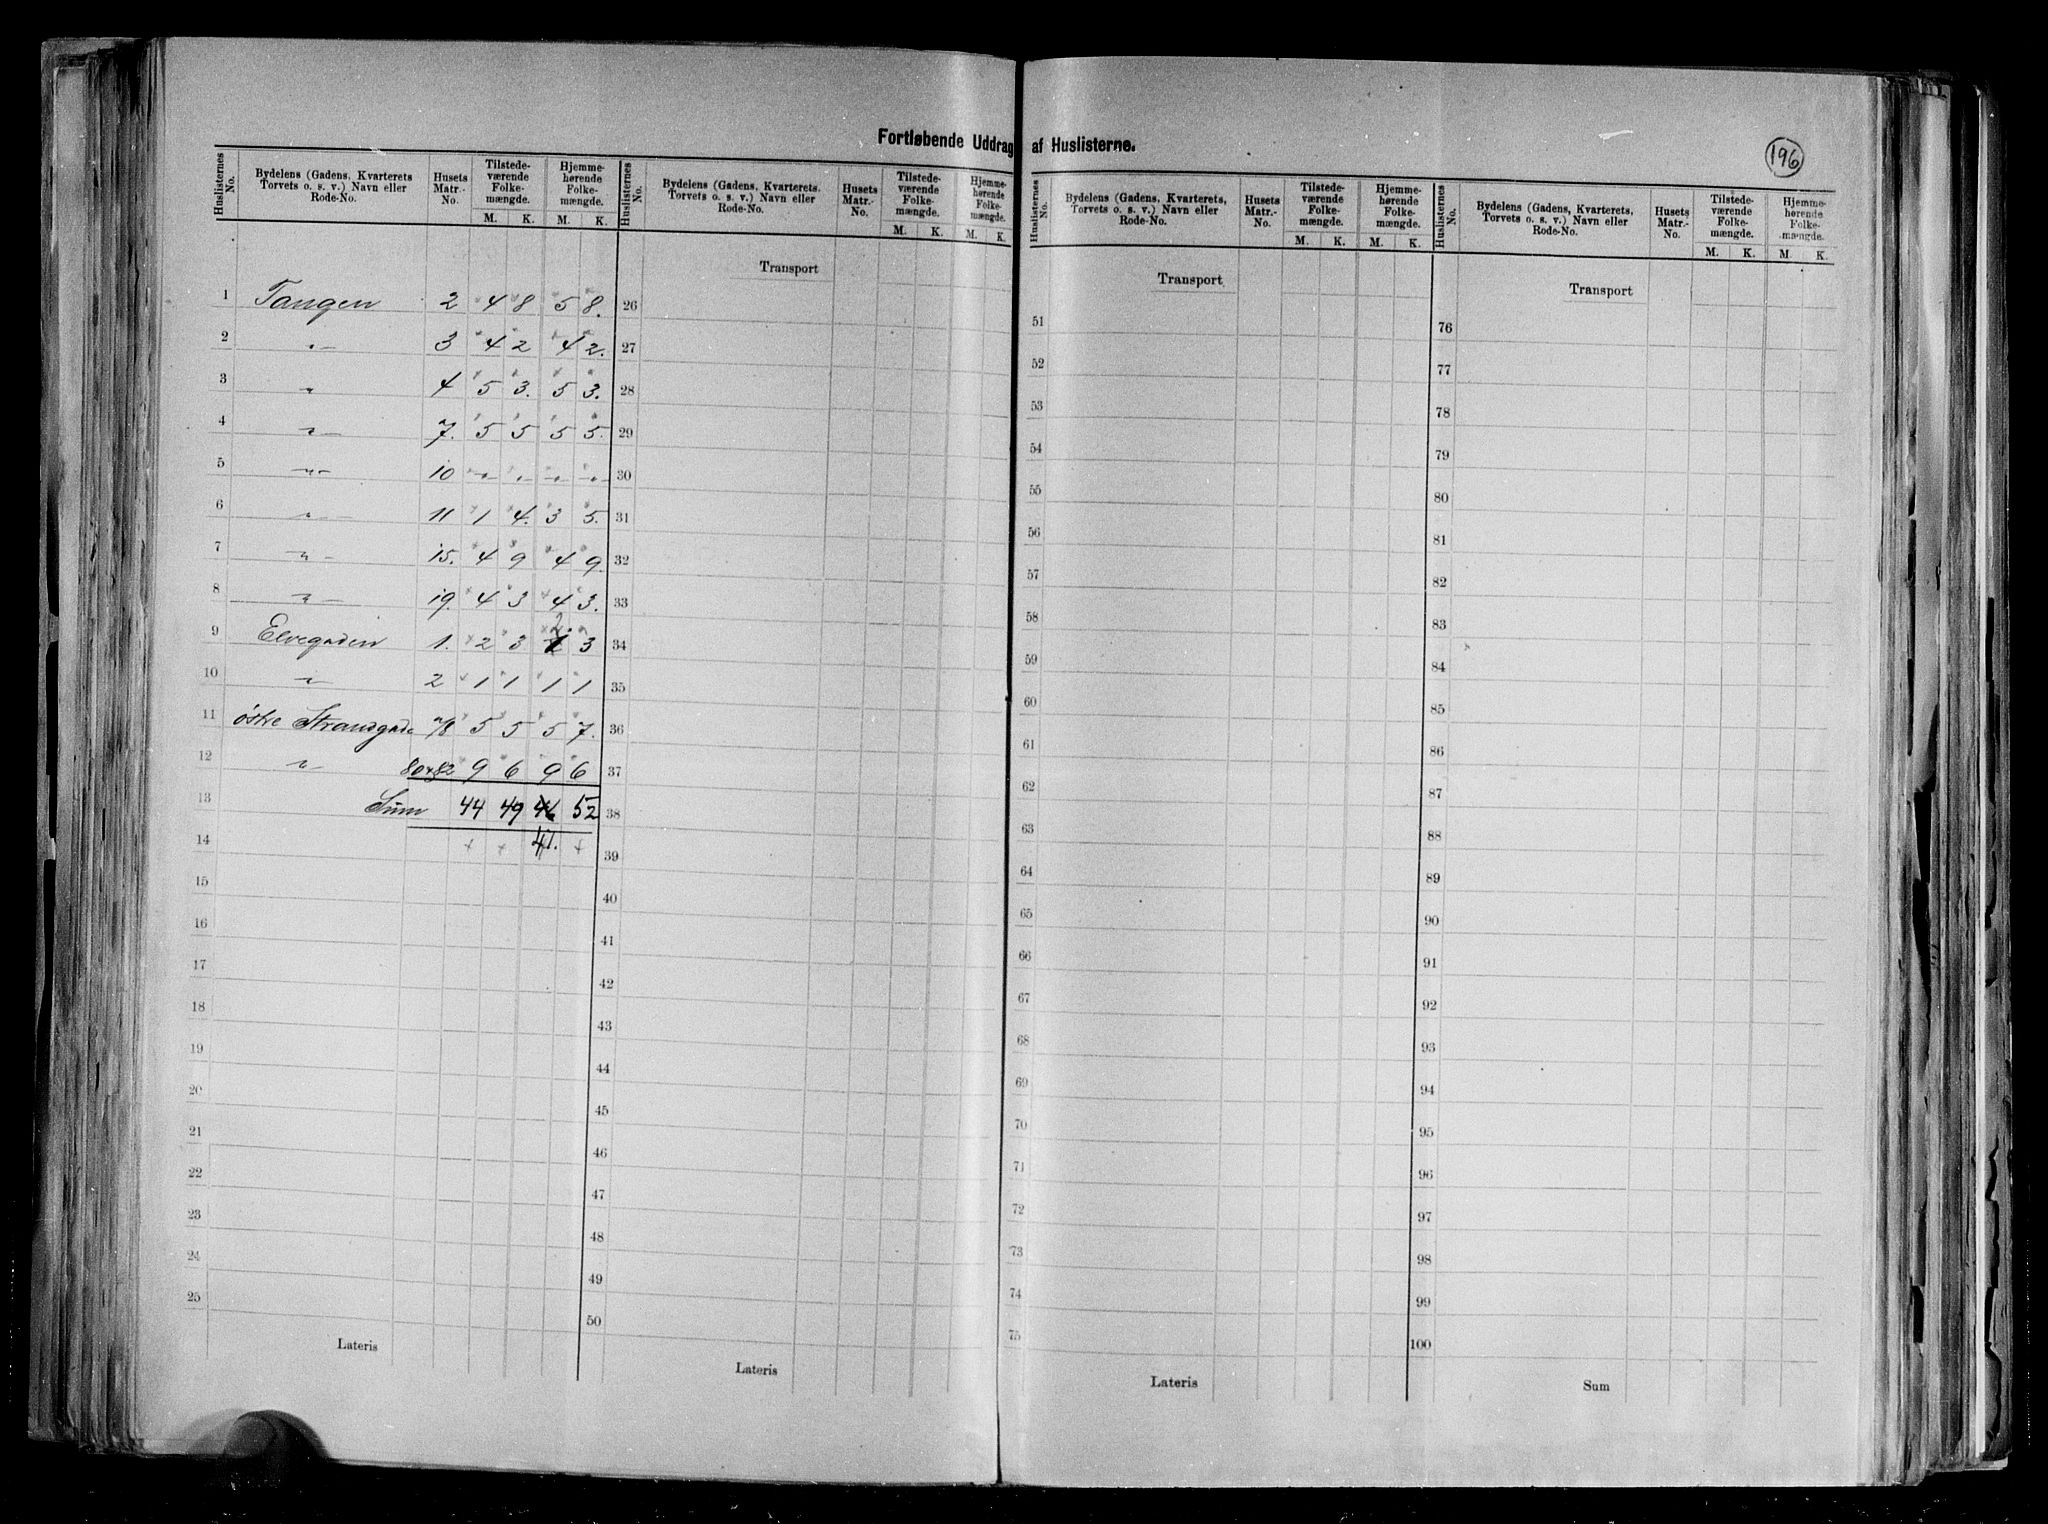 Fortløbende Uddrag af Huslisterne.
196
Huslisternes No. Bydelens (Gadens, Kvarterets Torvets o. s. v.) Navn eller Rode-No. Husets Matr.-No. Tilstedeværende Folkemængde. M. K. Hjemmehørende Folkemængde. M. K.
Huslisternes No. Bydelens (Gadens, Kvarterets, Torvets o. s. v.) Navn eller Rode-No. Husets Matr.-No. Tilstedeværende Folkemængde. M. K. Hjemmehørende Folkemængde. M. K.
Huslisternes No. Bydelens (Gadens, Kvarterets, Torvets o. s. v.) Navn eller Rode-No. Husets Matr.-No. Tilstedeværende Folkemængde. M. K. Hjemmehørende Folkemængde. M. K.
Huslisternes No. Bydelens (Gadens, Kvarterets, Torvets o. s. v.) Navn eller Rode-No. Husets Matr.-No. Tilstedeværende Folkemængde. M. K. Hjemmehørende Folkemængde. M. K.
1 Tangen 2 4 8 5 8.
2 -"- 3 4 2 4 2.
3 " 4 5 3. 5 3.
4 -"- 7. 5 5 5 5.
5 -"- 10 -"- " -"- -"-
6 -"- 11 1 4. 3 5.
7 -"- 15. 4 9 4 9
8 -"- 19. 4 3 4 3.
9 Elvegaden 1. 2 3 2 3
10 " 2 1 1 1 1
11 østre Strandgade 78 5 5 5 7.
12 " 80+82 9 6 9 6
13 Sum 44 49 46 52
14 47.
15
16
17
18
19
20
21
22
23
24
25
Lateris
Transport
26
27
28
29
30
31
32
33
34
35
36
37
38
39
40
41
42
43
44
45
46
47
48
49
50
Lateris
Transport
51
52
53
54
55
56
57
58
59
60
61
62
63
64
65
66
67
68
69
70
71
72
73
74
75
Lateris
Transport
76
77
78
79
80
81
82
83
84
85
86
87
88
89
90
91
92
93
94
95
96
97
98
99
100
Sum